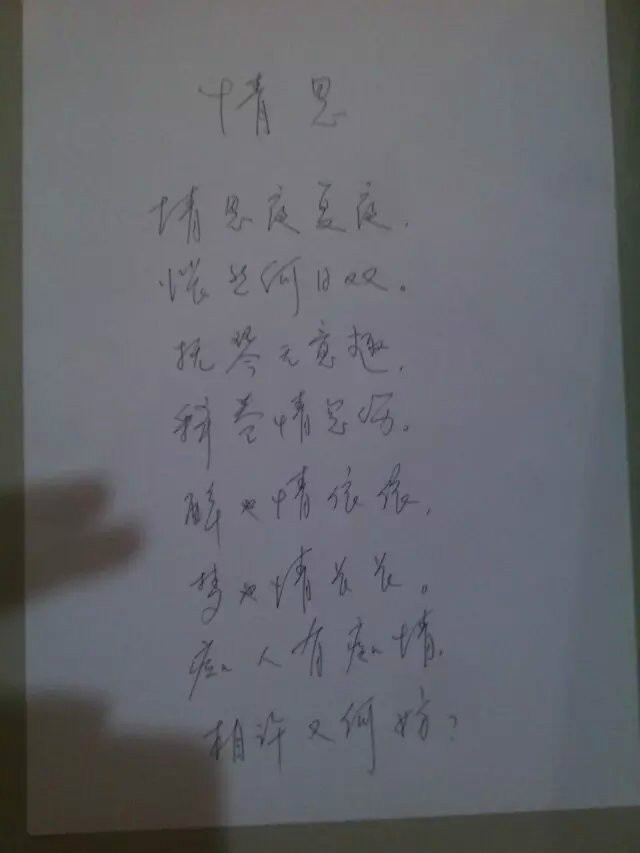 情思
情思度夏庭,
何日双。
抚琴无意趣,
卷情思伤。
醉也情依依,
梦也情长长。
痴人有痴情,
相许又何妨?